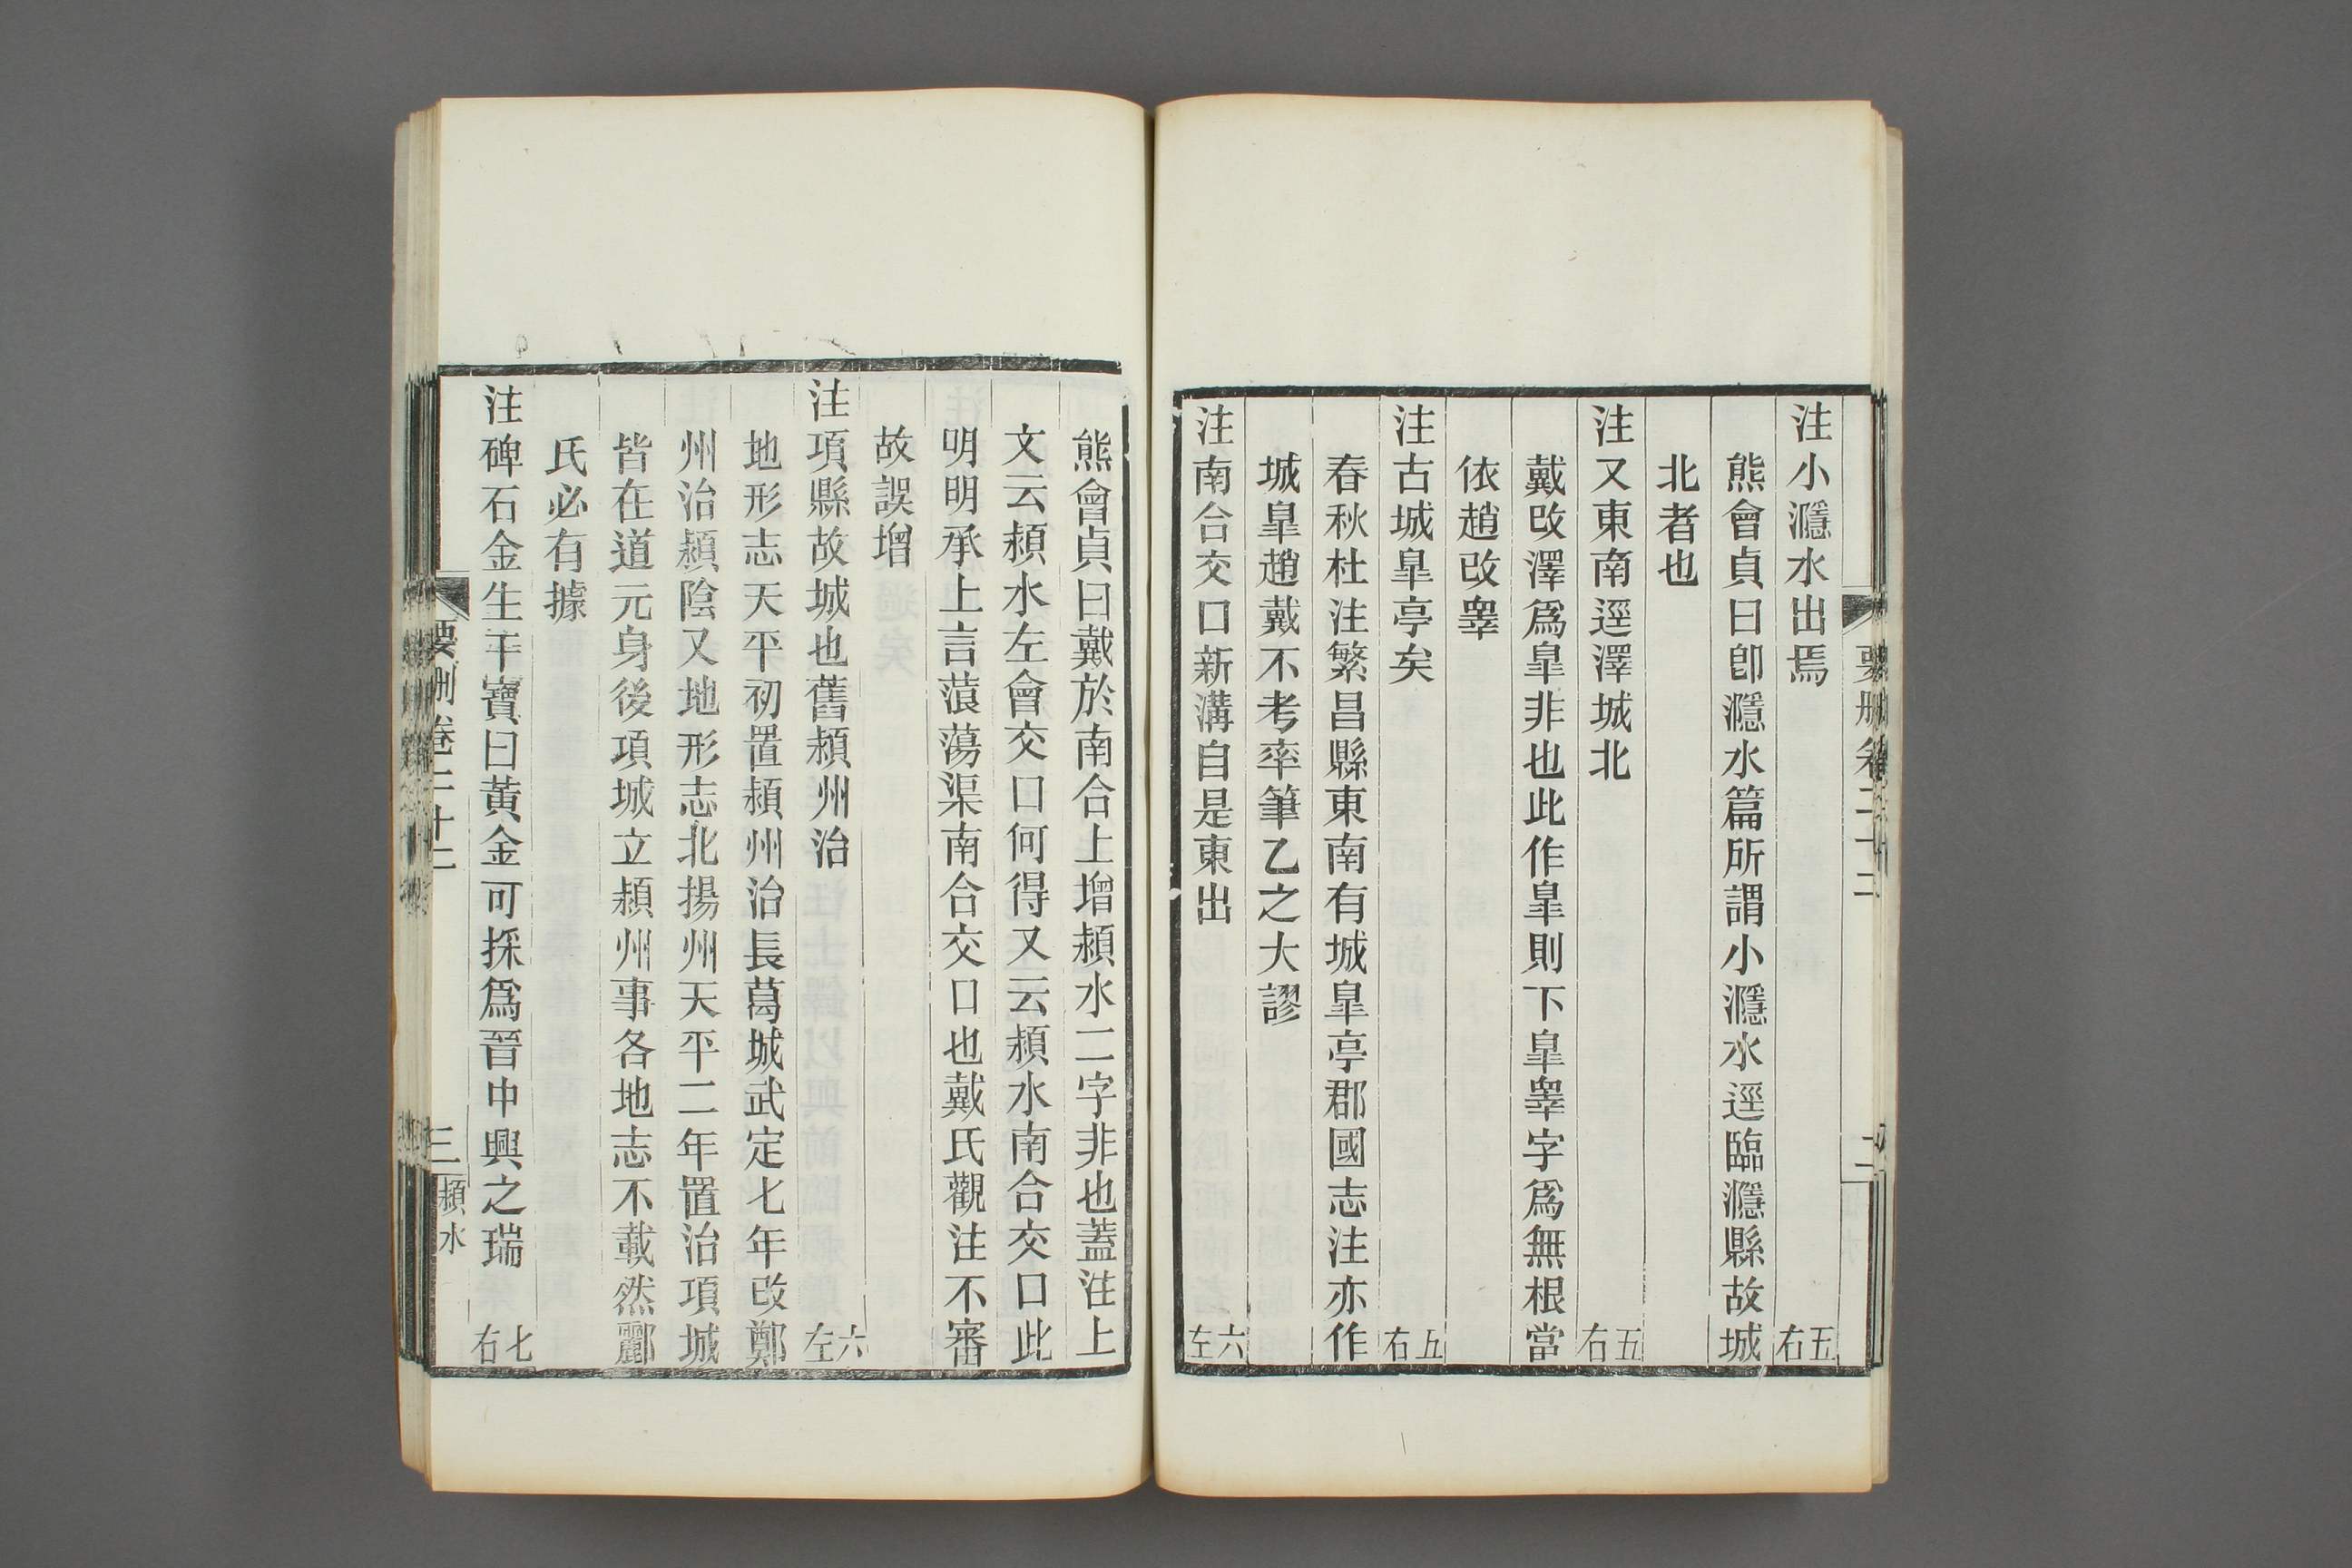 注小濦水出焉 五右
熊會貞曰卽濦水篇所謂小濦水逕臨濦縣故城
北者也
注又東南逕澤城北 五右
戴改澤爲臯非也此作臯則下臯睾字爲無根當
依趙改睾
注古城臯亭矣 五右
春秋杜注繁昌縣東南有城臯亭郡國志注亦作
城臯趙戴不考率筆乙之大謬
注南合交口新溝自是東出 六左
熊會貞曰戴於南合上增潁水二字非也蓋注上
文云潁水左會交口何得又云潁水南合交口此
明明承上言蒗蕩渠南合交口也戴氏觀注不審
故誤增
注項縣故城也舊潁州治 六左
地形志天平初置潁州治長葛城武定七年改鄭
州治潁陰又地形志北揚州天平二年置治項城
皆在道元身後項城立潁州事各地志不載然酈
氏必有據
注碑石金生干寶曰黃金可採爲晉中興之瑞 七右
要刪卷二十二
三
潁水